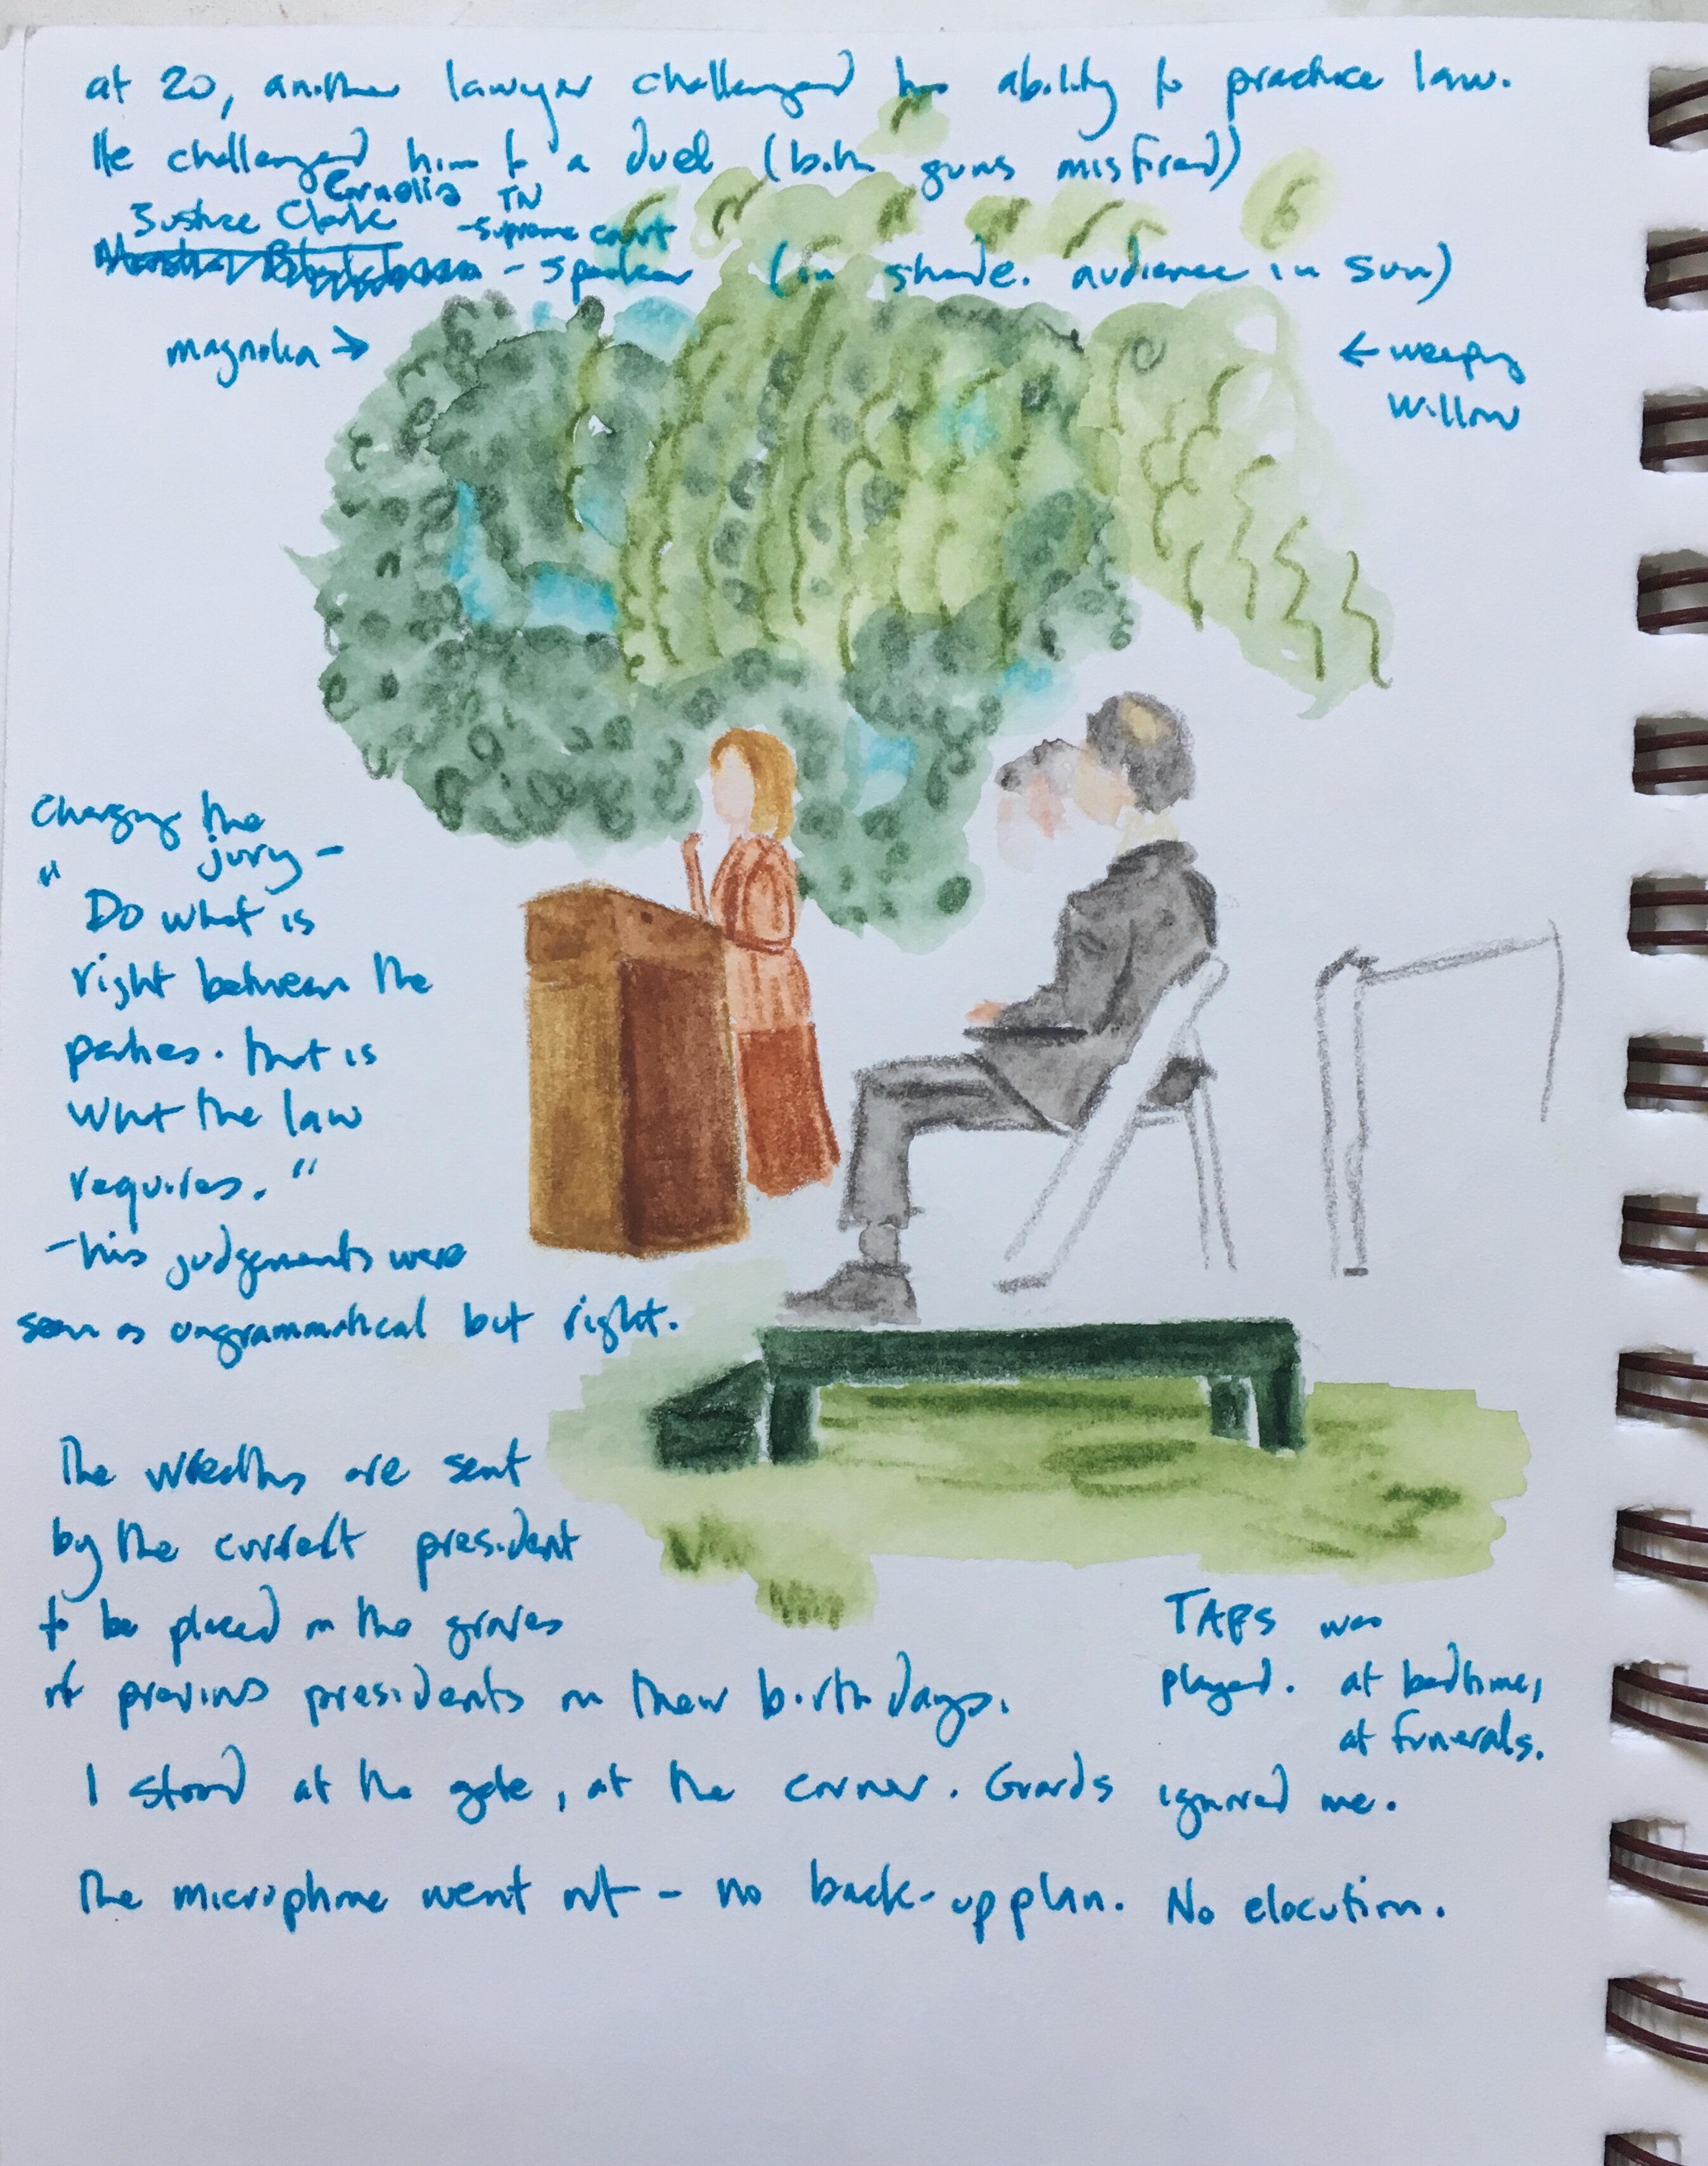 at 20, another lawyer challenged his ability to practice law.
He challenged him to a duel (both guns misfired)
Cornelia TN
Justice Clark - supreme court
- speaker (in shade. audience in sun)
magnolia →
← weeping
willow
Charging the
jury -
"Do what is
right between the
parties. that is
what the law
requires."
- his judgements were
seen as ungrammatical but right.
The wreaths are sent
by the current president
to be placed on the graves
of previous presidents on their birthdays.
TAPS was
played. at bedtime,
at funerals.
I stood at the gate, at the corner. Guards ignored me.
The microphone went out - no back-up plan. No elocution.